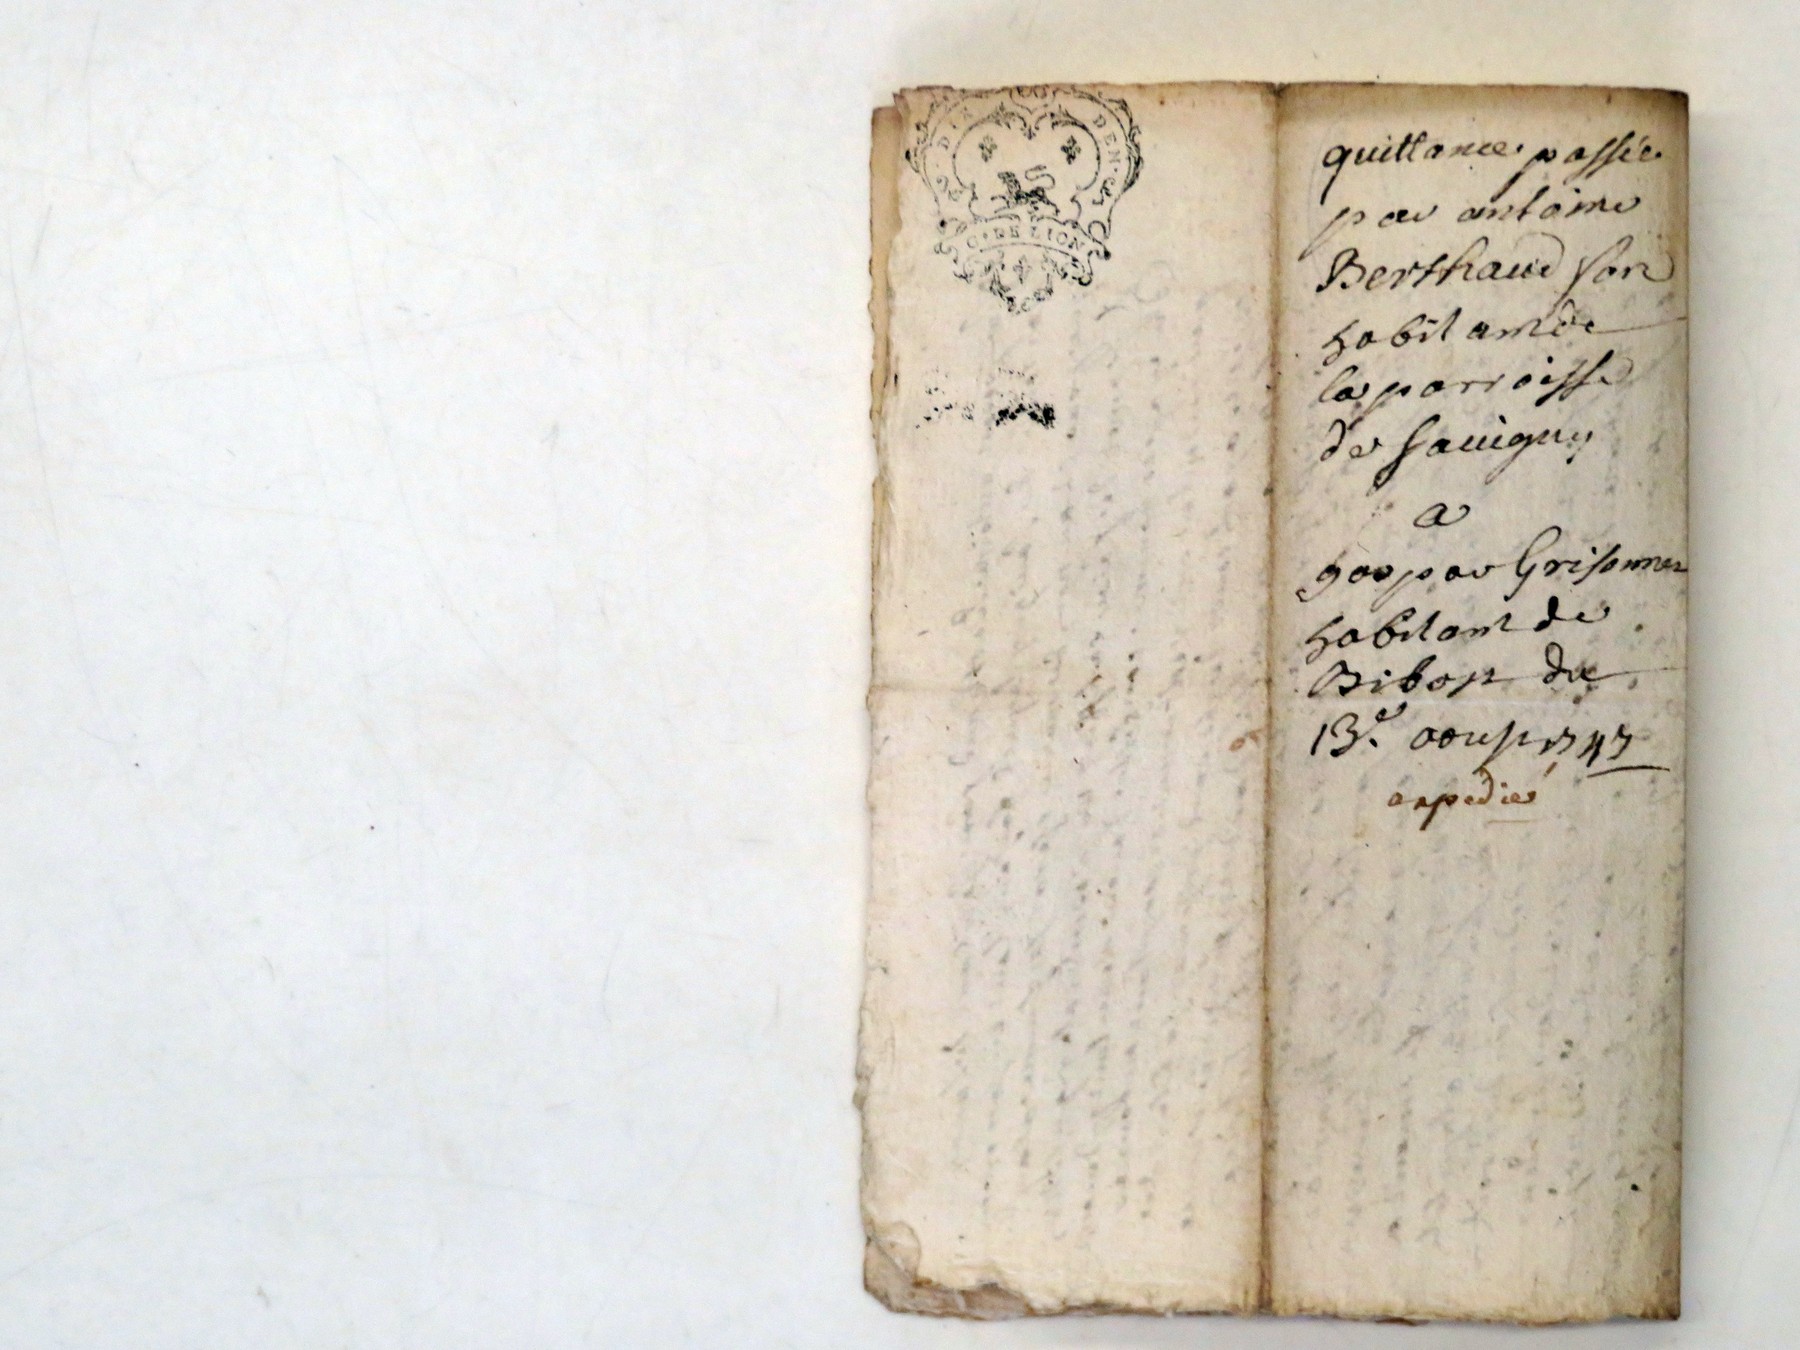 DIX DEN.
G. DE LION
quittance passée
par antoine
Berthaud son
habitant de
la parroisse
de Sauigny
a
gaspar Grisonner
habitant de
Bibost du
13.e aoust 1747
expedié